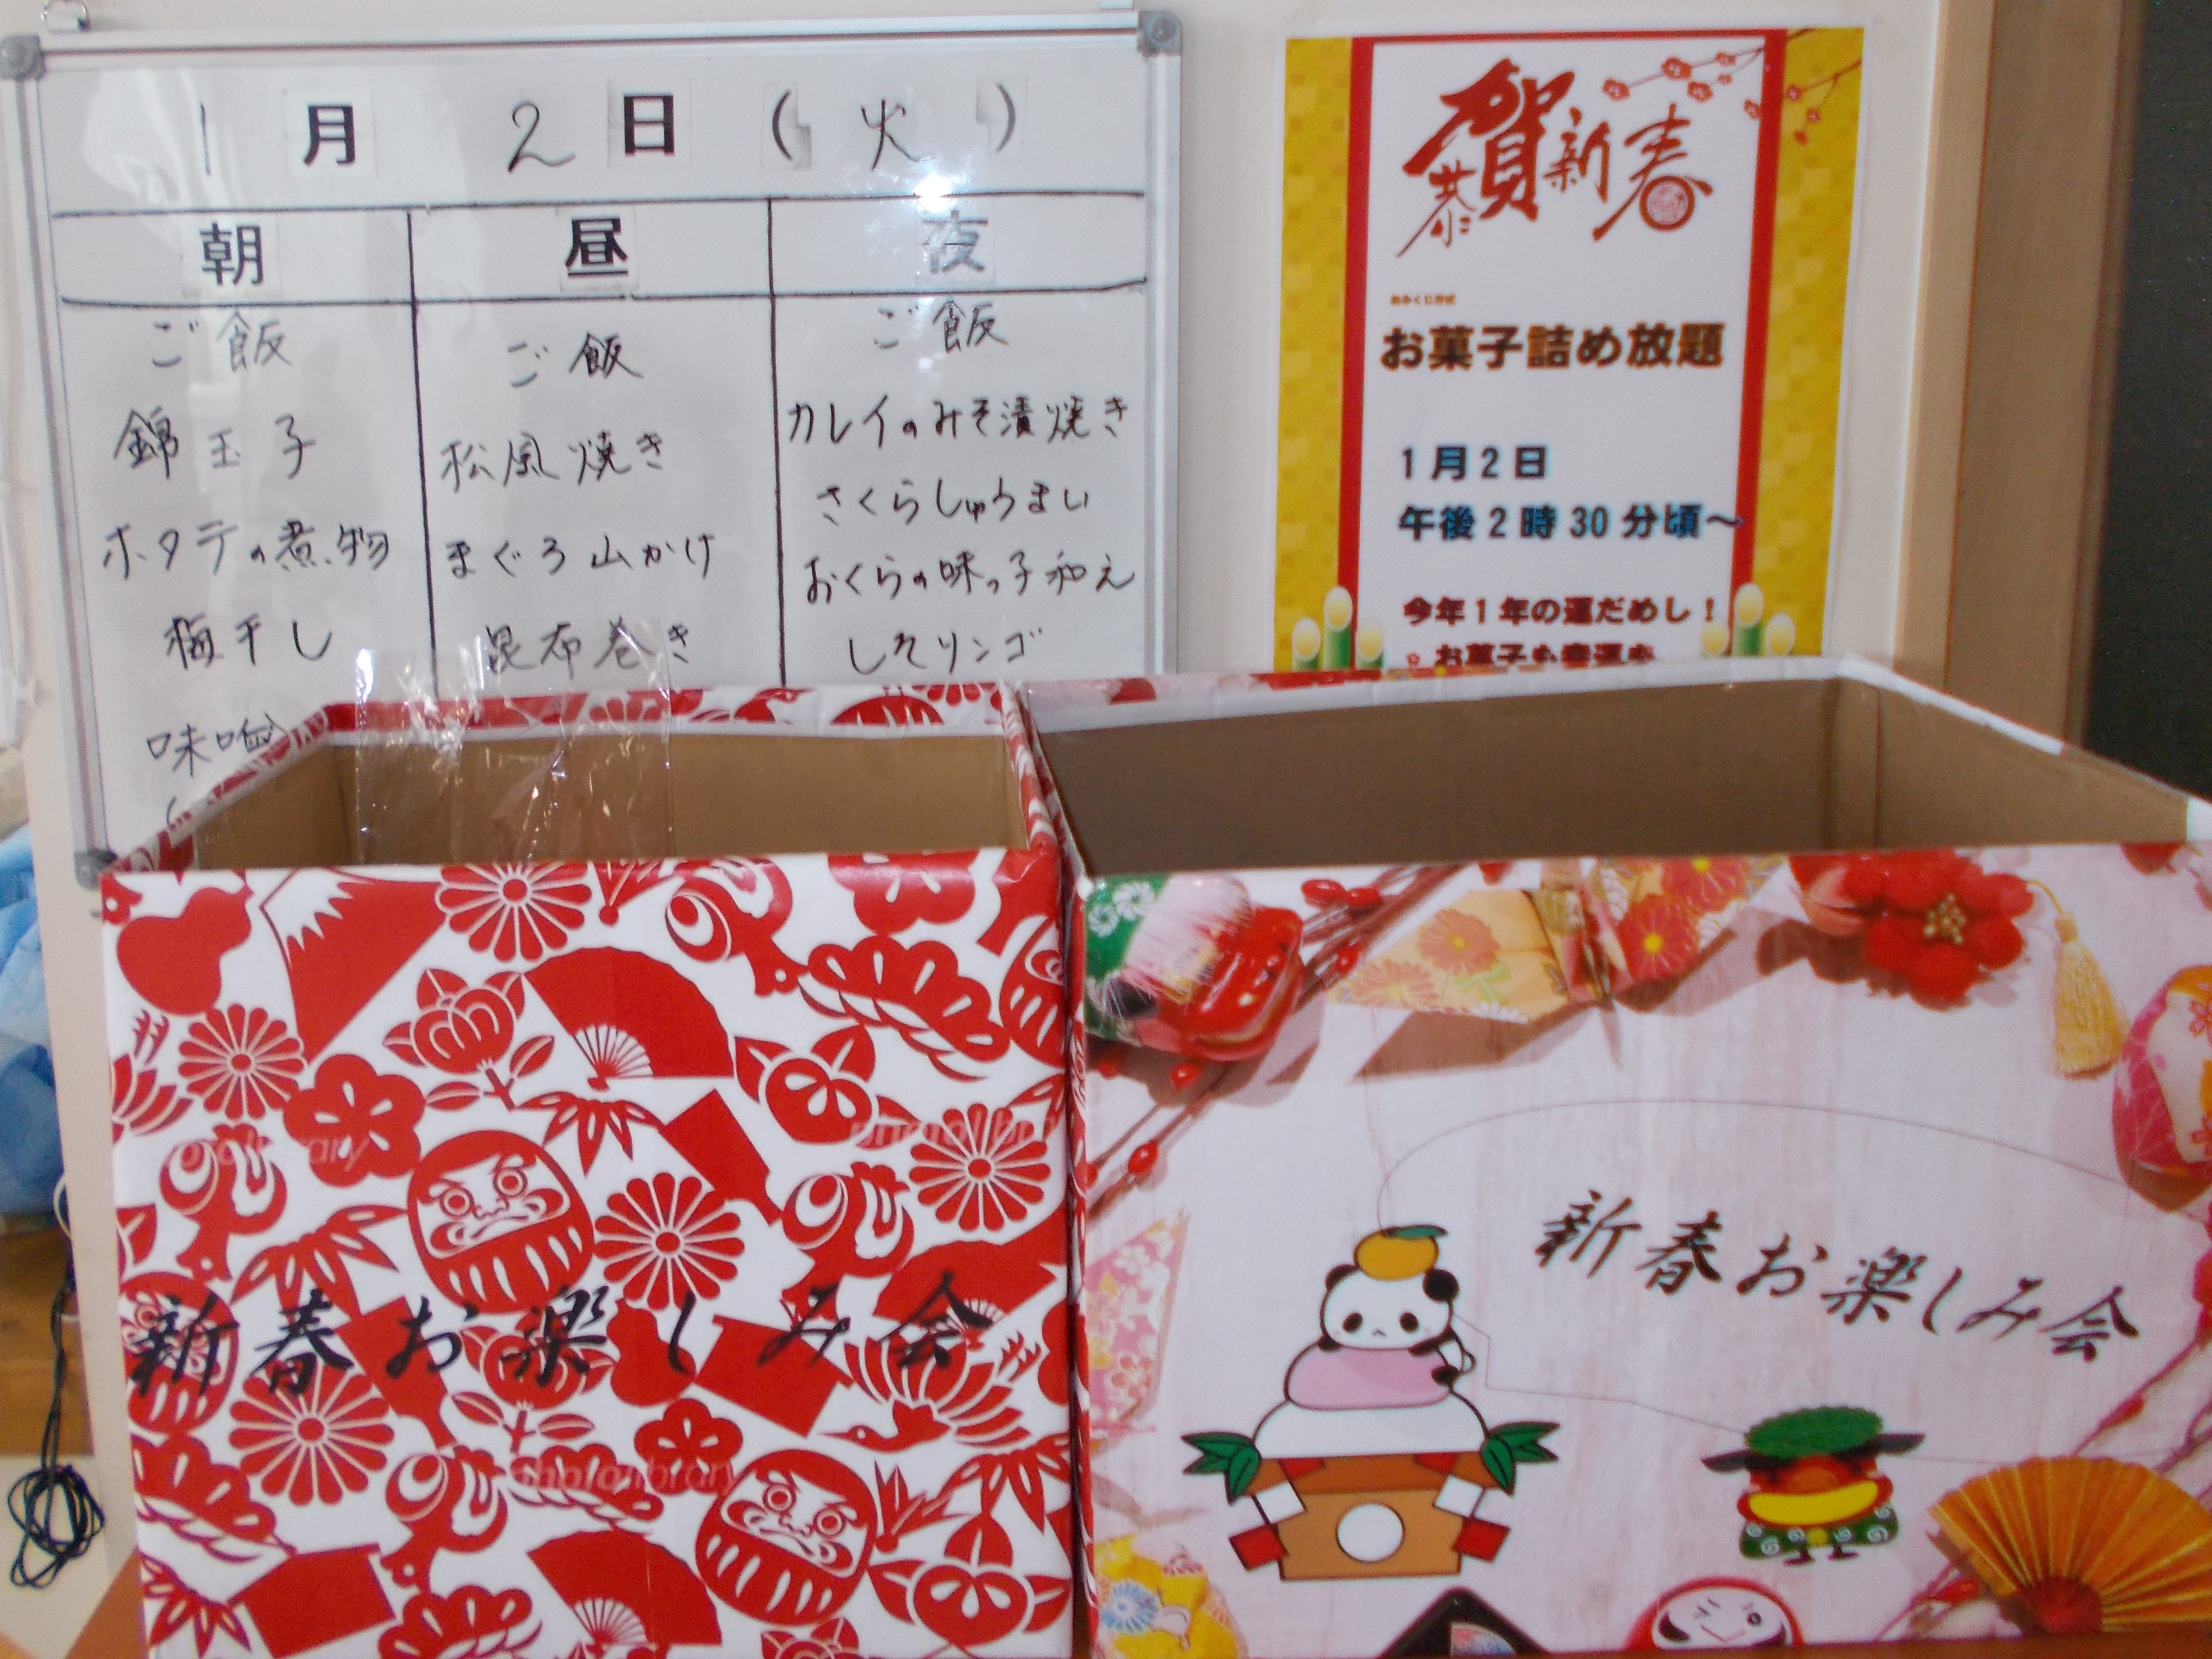 1月 2日 (火)
朝 昼 夜
ご飯
錦玉子
ホタテの煮物
梅干し
味噌
ご飯
松風焼き
まぐろ山かけ
昆布巻き
ご飯
カレイのみそ漬焼き
さくらしゅうまい
おくらの味っ子和え
しそリンゴ
恭賀新春
おみくじ方式
お菓子詰め放題
1月2日
午後2時30分頃～
今年1年の運だめし!
お菓子も幸運も
新春お楽しみ会
新春お楽しみ会
photolibrary
photolibrary
photolibrary